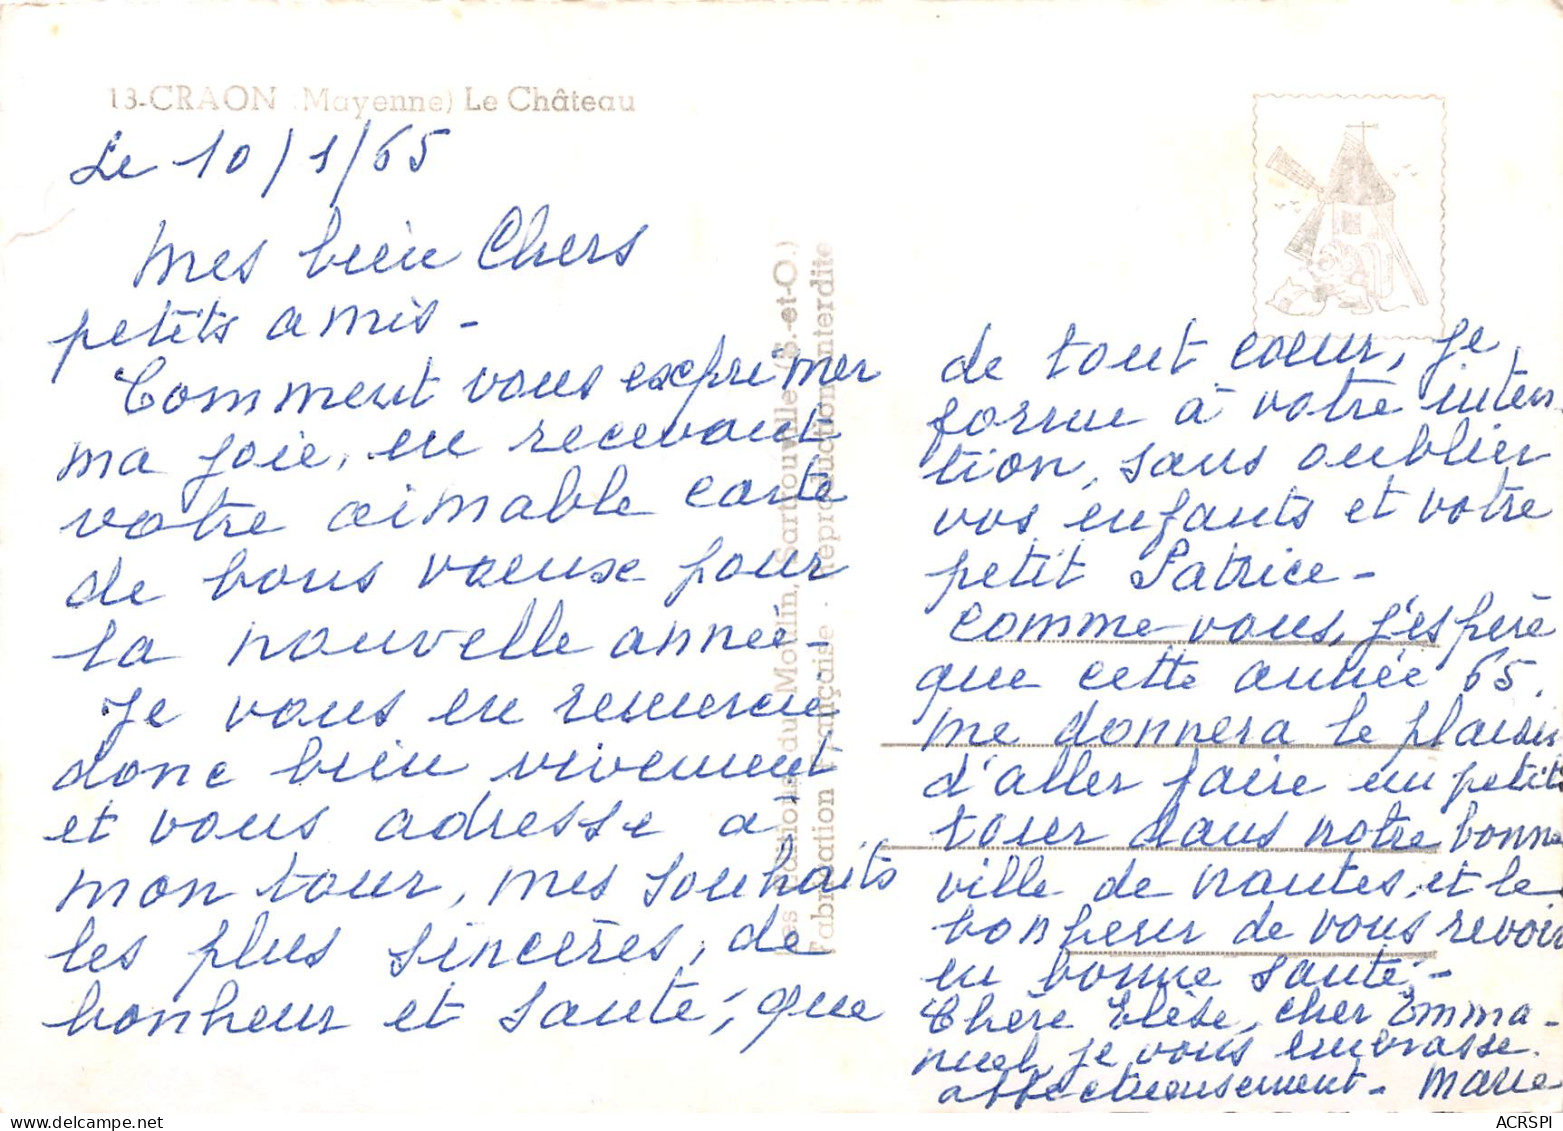 13-CRAON (Mayenne) Le Château
Le 10/1/65
Mes bien Chers
petits amis -
Comment vous exprimer
ma joie, en recevant
votre aimable carte
de bons voeux pour
la nouvelle année -
Je vous en remercie
donc bien vivement
et vous adresse à
mon tour, mes souhaits
les plus sincères, de
bonheur et santé, que
de tout coeur, je
forme à votre inten-
tion, sans oublier
vos enfants et votre
petit Patrice -
Comme vous, j'espère
que cette année 65.
me donnera le plaisir
d'aller faire un petit
tour dans notre bonne
ville de Nantes, et le
bonheur de vous revoir
en bonne santé -
Chère Elèse, cher Emma-
nuel, je vous embrasse
affectueusement - Marie
Les Editions du Moulin, Sartrouville (S.-et-O.)
Fabrication Française - Reproduction interdite
ACRSPI